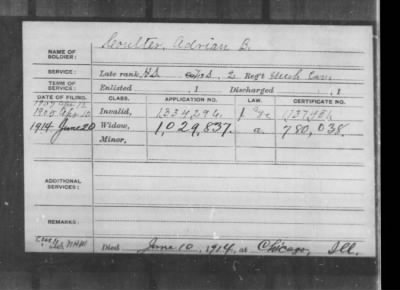 NAME OF SOLDIER: Coulter, Adrian B.
SERVICE: Late rank, Co. 2 Reg't Cav.
TERM OF SERVICE: Enlisted , 1 Discharged , 1
DATE OF FILING. CLASS. APPLICATION NO. LAW. CERTIFICATE NO.
Invalid, 1334296.
1914 June 20 Widow, 1,029,837. a. 780,038.
Minor,
ADDITIONAL SERVICES:
REMARKS:
Died June 10, 1914, at Chicago, Ill.